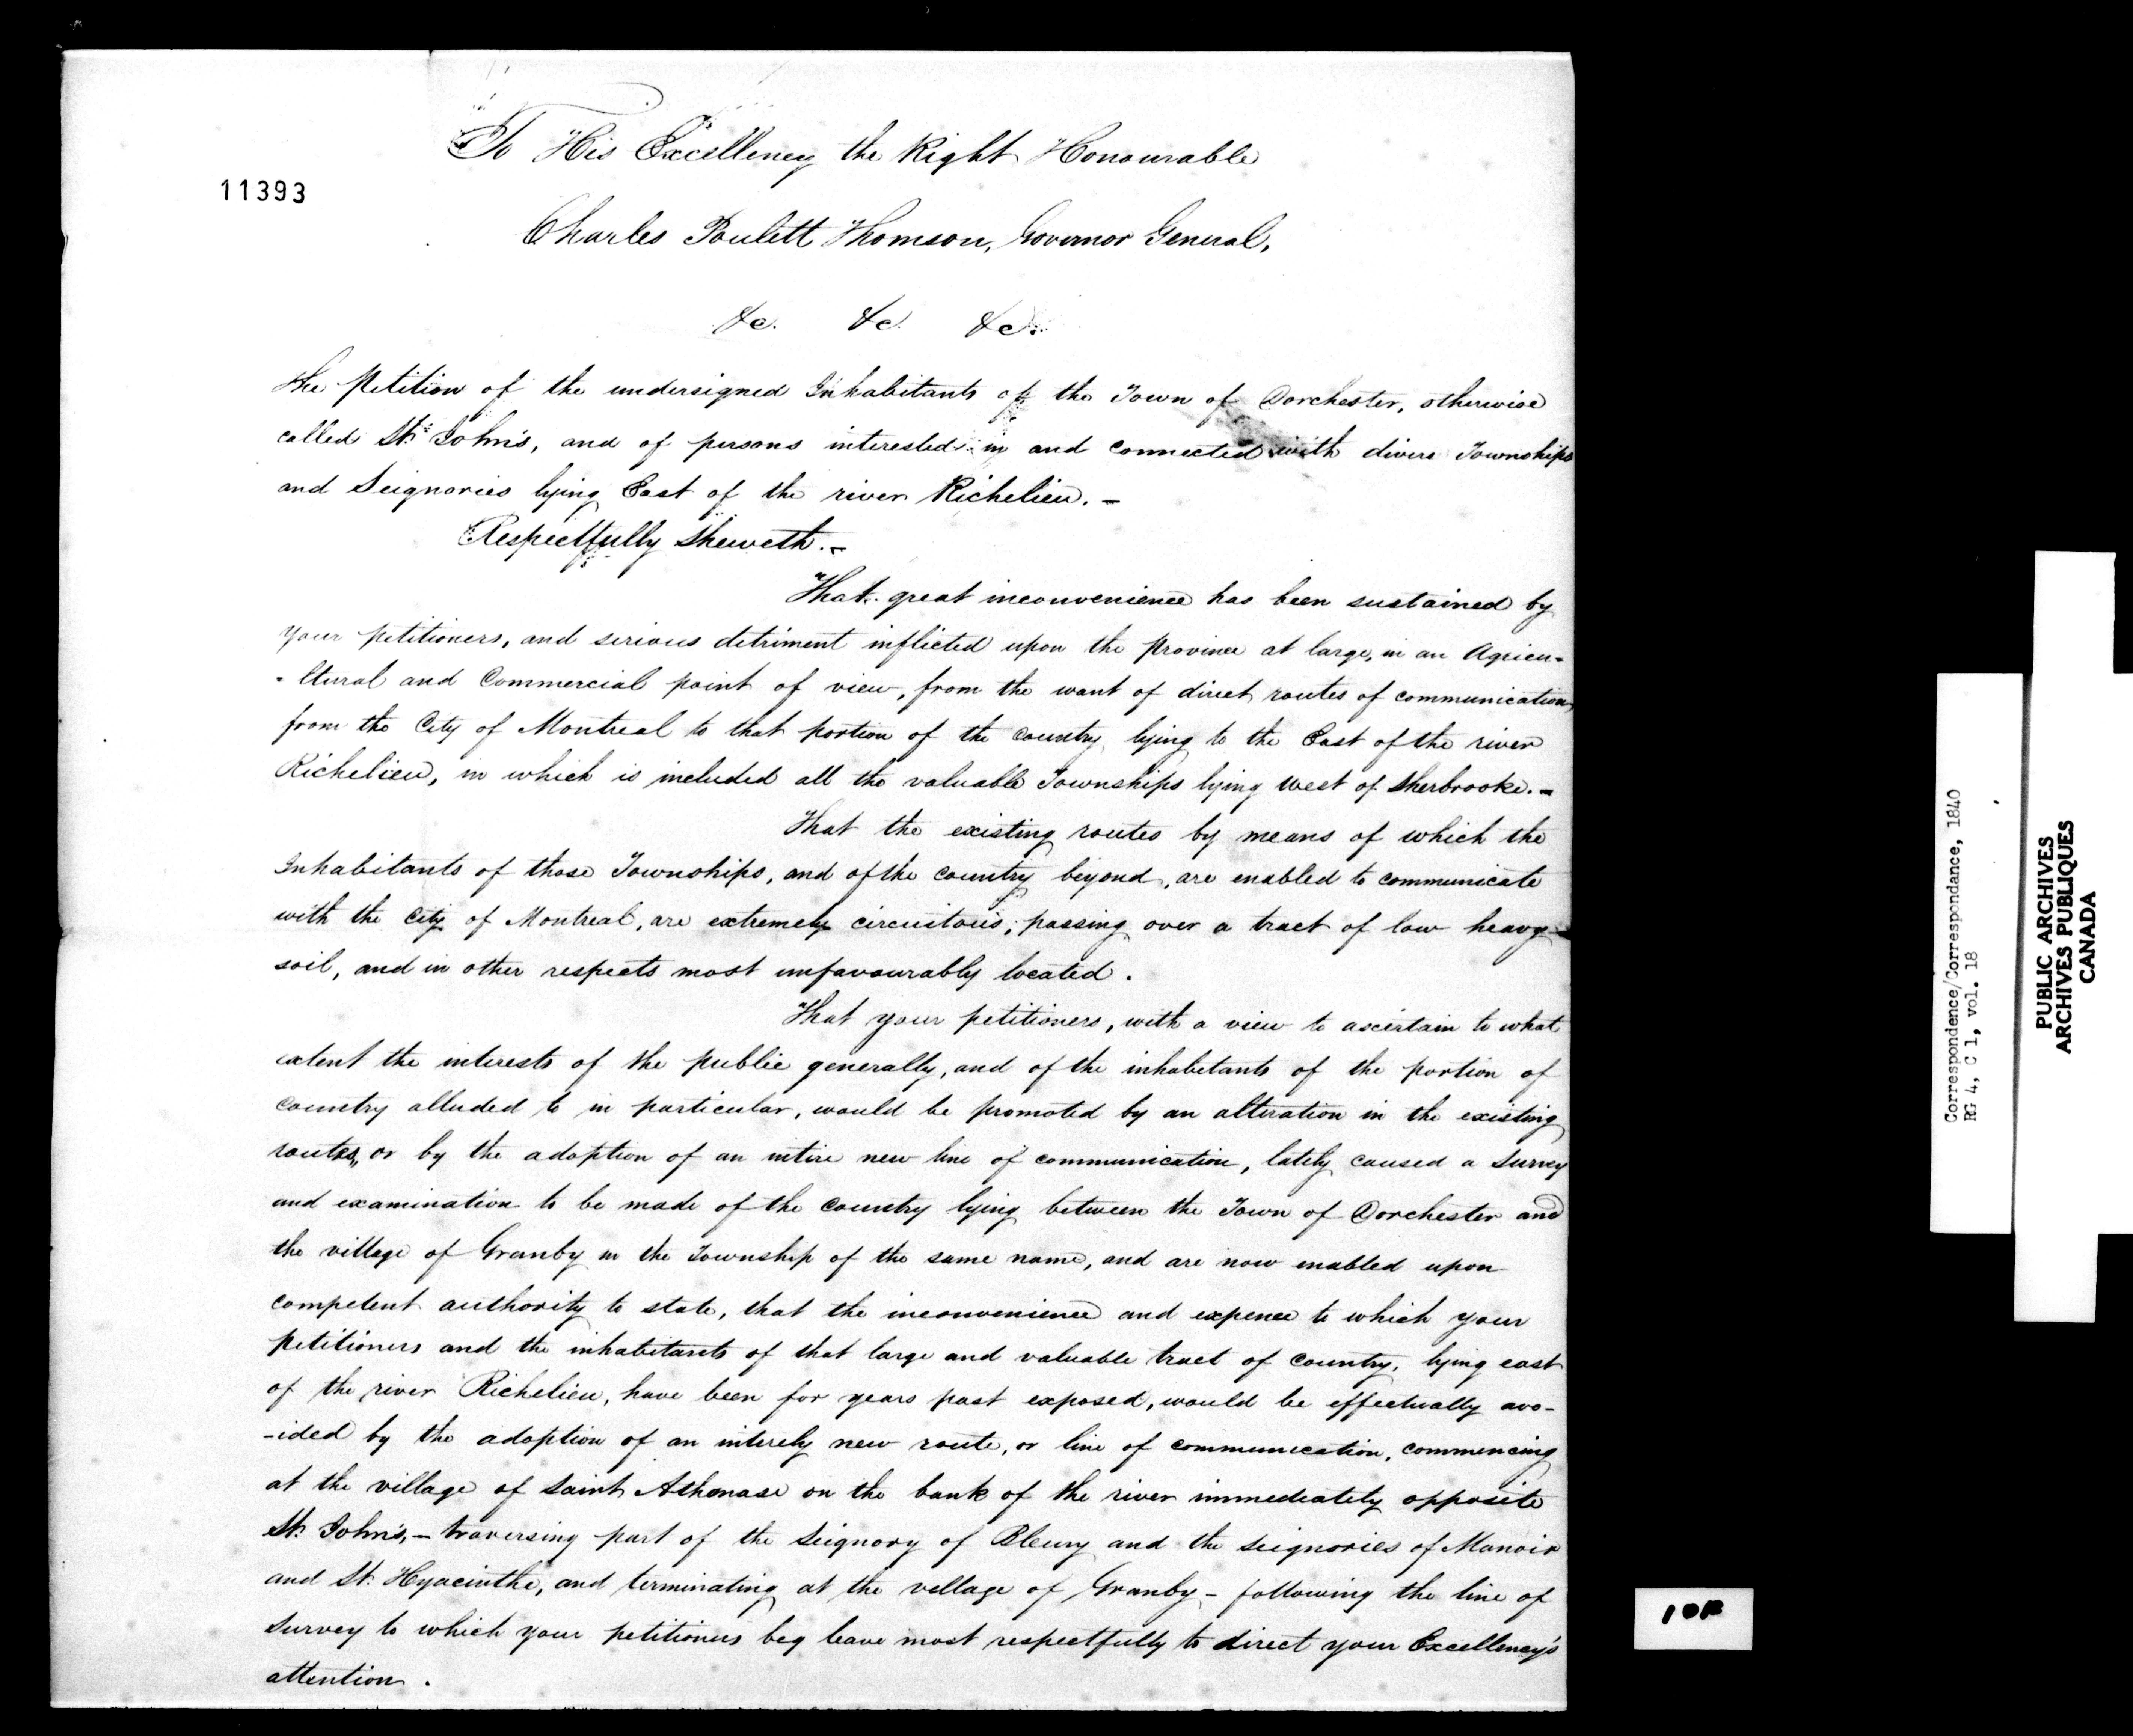 To His Excellency the Right Honourable
11393
Charles Poulett Thomson, Governor General,
&c. &c. &c.
The Petition of the undersigned Inhabitants of the Town of Dorchester, otherwise
called St. John's, and of persons interested in and connected with divers Townships
and Seignories lying East of the river Richelieu. –
Respectfully Sheweth. –
That great inconvenience has been sustained by
your petitioners, and serious detriment inflicted upon the province at large, in an Agricu-
-ltural and Commercial point of view, from the want of direct routes of communication,
from the City of Montreal to that portion of the Country lying to the East of the river
Richelieu, in which is included all the valuable Townships lying west of Sherbrooke. –
That the existing routes by means of which the
Inhabitants of those Townships, and of the country beyond, are enabled to communicate
with the City of Montreal, are extremely circuitous; passing over a tract of low heavy
soil, and in other respects most unfavourably located.
That your petitioners, with a view to ascertain to what
extent the interests of the public generally, and of the inhabitants of the portion of
Country alluded to in particular, would be promoted by an alteration in the existing
routes, or by the adoption of an intire new line of communication, lately caused a Survey
and examination to be made of the Country lying between the Town of Dorchester and
the village of Granby in the Township of the same name, and are now enabled upon
competent authority to state, that the inconvenience and expence to which your
petitioners and the inhabitants of that large and valuable tract of country, lying east
of the river Richelieu, have been for years past exposed, would be effectually avo-
-ided by the adoption of an intirely new route, or line of communication, commencing
at the village of Saint Athanase on the bank of the river immediately opposite
St. John's, – traversing part of the Seignory of Bleury and the seignories of Manoir
and St. Hyacinthe, and terminating at the village of Granby – following the line of
Survey to which your petitioners beg leave most respectfully to direct your Excellency's
attention.
Correspondence/Correspondance, 1840
RG 4, C 1, vol. 18
PUBLIC ARCHIVES
ARCHIVES PUBLIQUES
CANADA